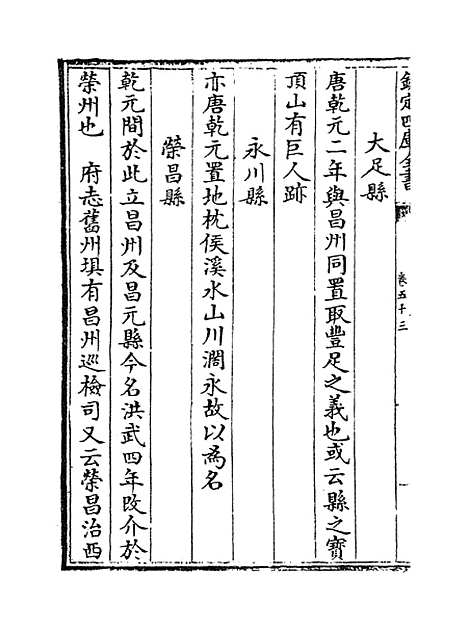 欽定四庫全書
卷五十三
大足縣
唐乾元二年與昌州同置取豐足之義也或云縣之寳
頂山有巨人跡
永川縣
亦唐乾元置地枕侯溪水山川濶永故以為名
榮昌縣
乾元間於此立昌州及昌元縣今名洪武四年改介於
榮州也　府志舊州埧有昌州巡檢司又云榮昌治西